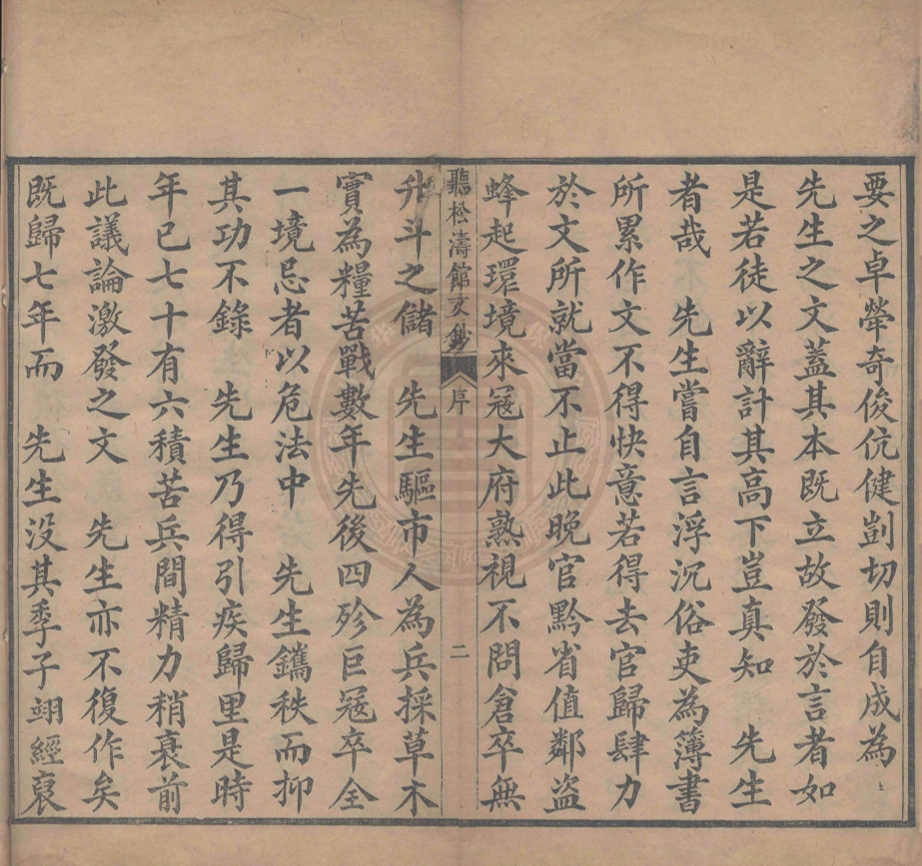 要之卓犖奇俊伉健剴切則自成為
先生之文蓋其本既立故發於言者如
是若徒以辭計其高下豈真知　先生
者哉　先生嘗自言浮沉俗吏為簿書
所累作文不得快意若得去官歸肆力
於文所就當不止此晚官黔省值鄰盜
蜂起環境來寇大府熟視不問倉卒無
聽松濤館文鈔　序　二
升斗之儲　先生驅市人為兵採草木
實為糧苦戰數年先後四殄巨寇卒全
一境忌者以危法中　先生鐫秩而抑
其功不錄　先生乃得引疾歸里是時
年已七十有六積苦兵間精力稍衰前
此議論激發之文　先生亦不復作矣
既歸七年而　先生没其季子翊經裒